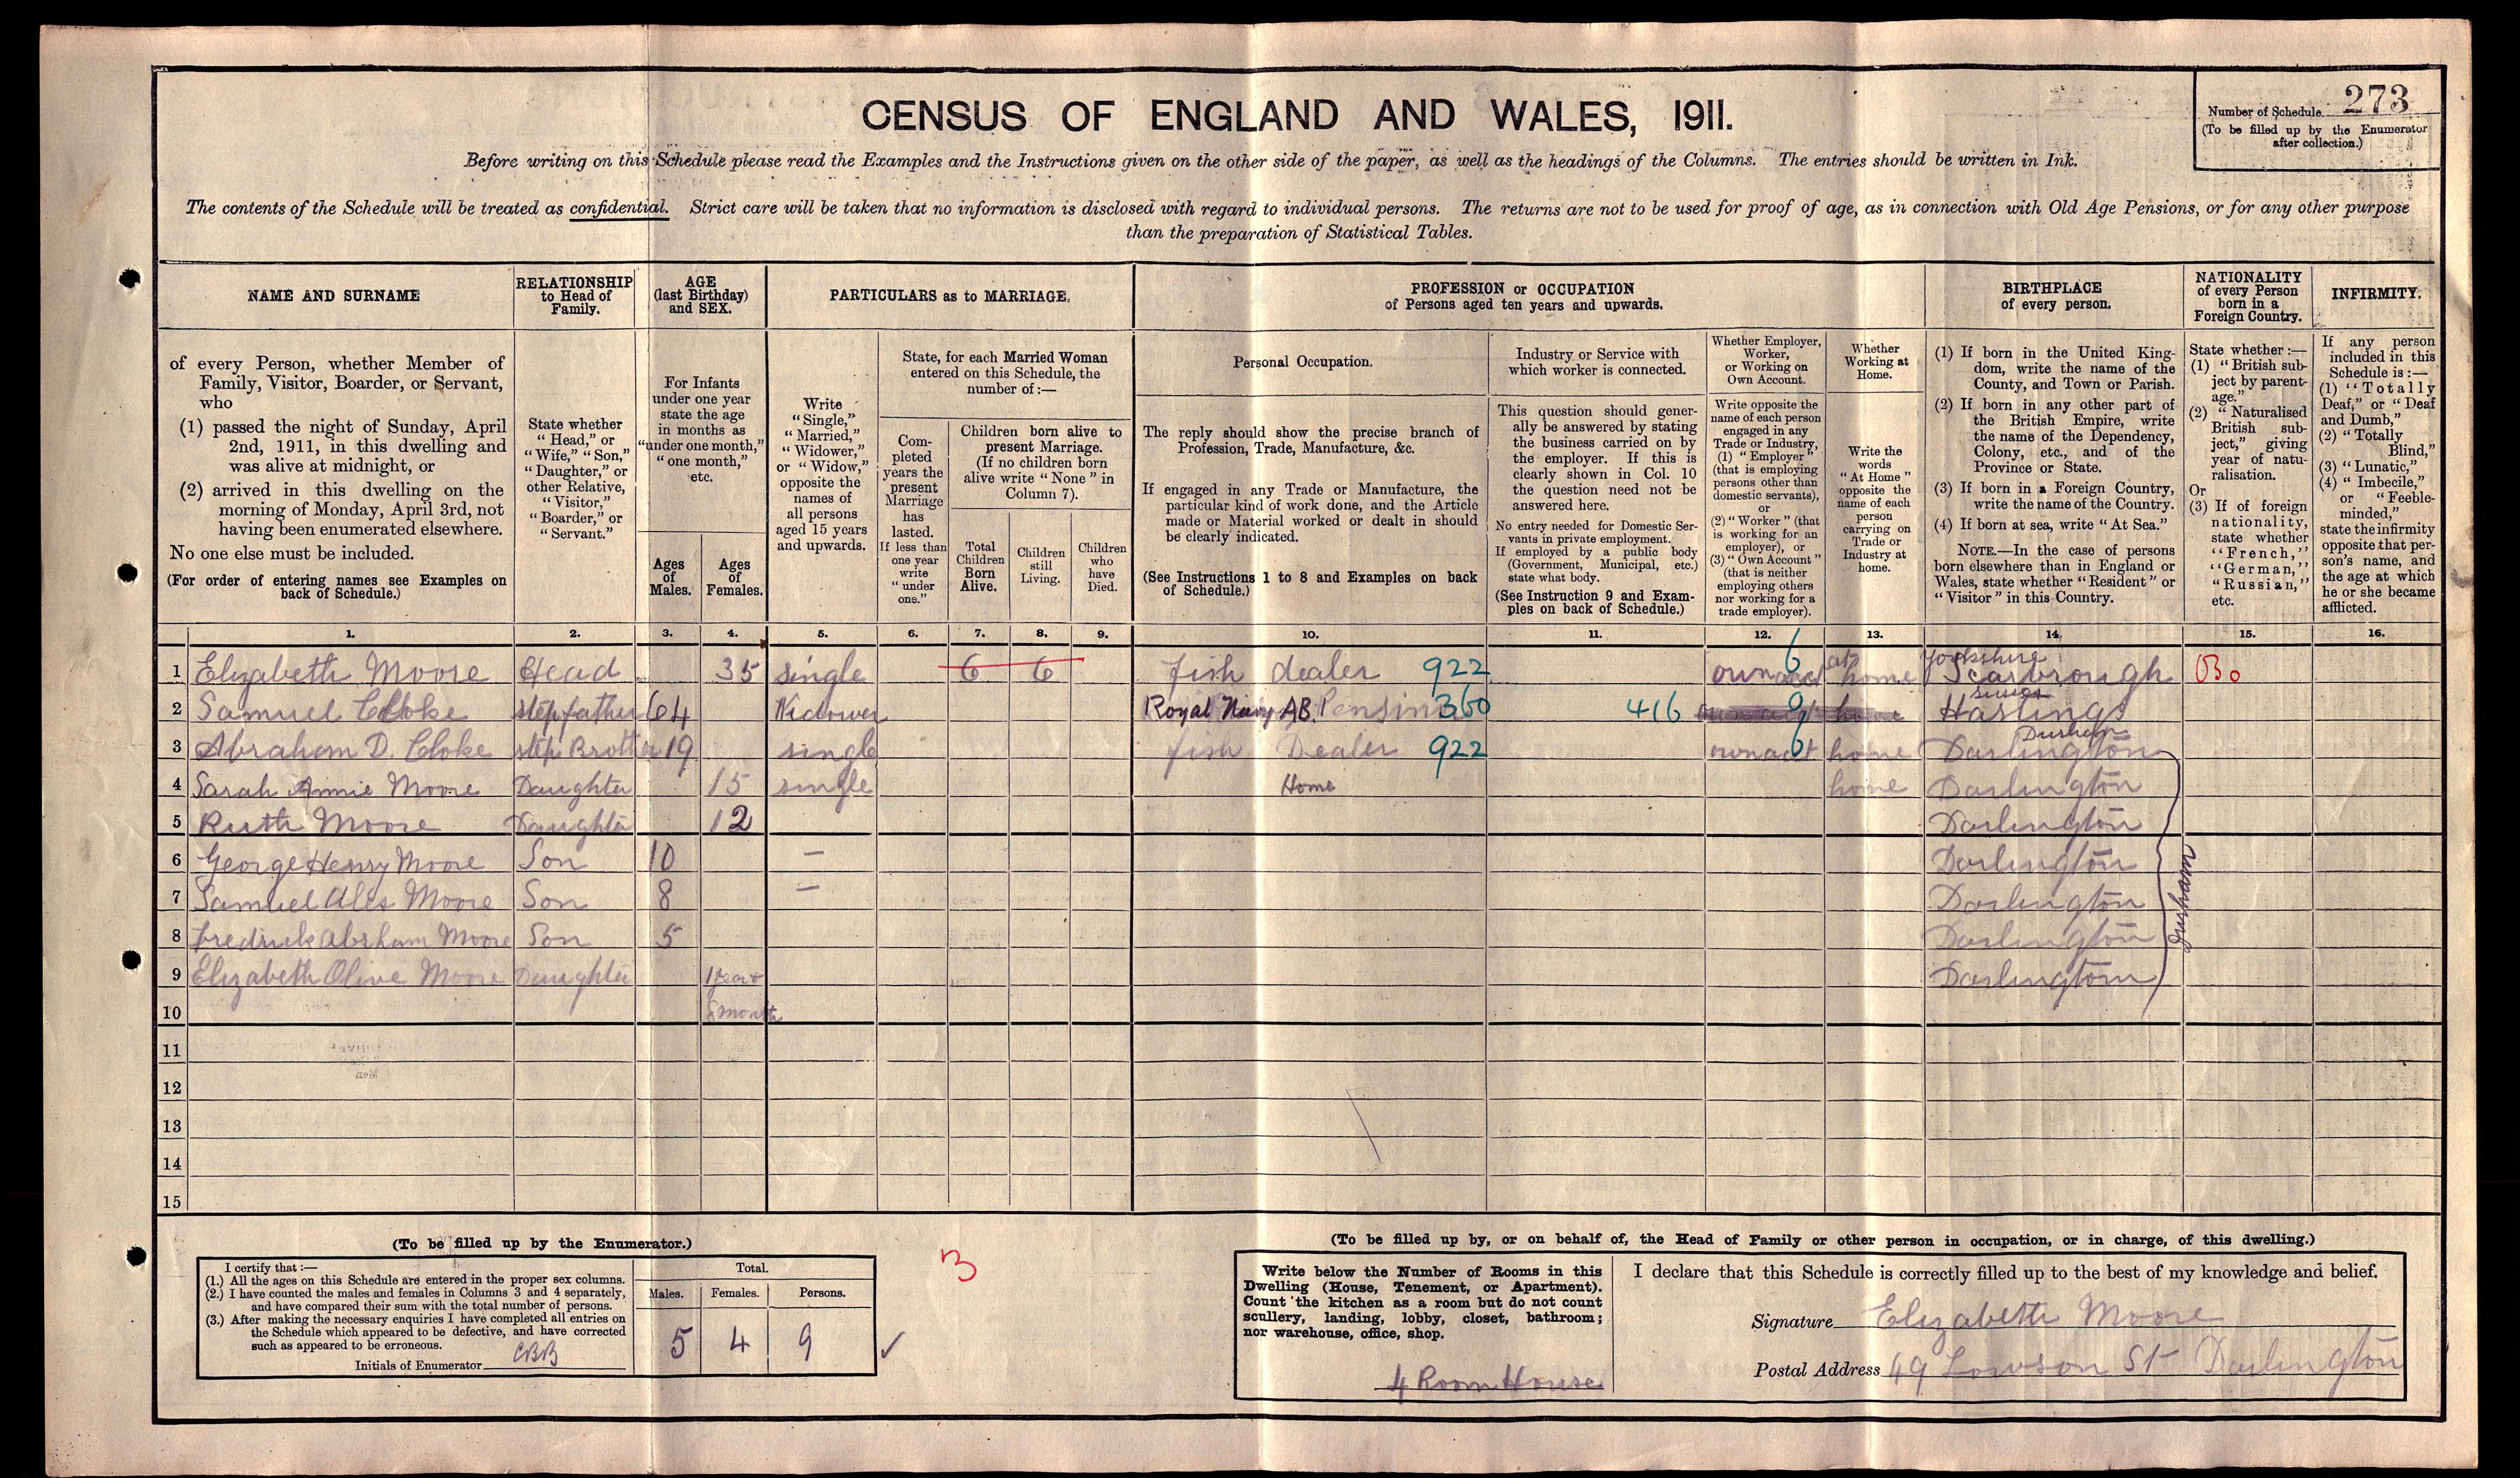 CENSUS OF ENGLAND AND WALES, 1911.
Number of Schedule 273
(To be filled up by the Enumerator
after collection.)
Before writing on this Schedule please read the Examples and the Instructions given on the other side of the paper, as well as the headings of the Columns. The entries should be written in Ink.
The contents of the Schedule will be treated as confidential. Strict care will be taken that no information is disclosed with regard to individual persons. The returns are not to be used for proof of age, as in connection with Old Age Pensions, or for any other purpose
than the preparation of Statistical Tables.
NAME AND SURNAME
of every Person, whether Member of
Family, Visitor, Boarder, or Servant,
who
(1) passed the night of Sunday, April
2nd, 1911, in this dwelling and
was alive at midnight, or
(2) arrived in this dwelling on the
morning of Monday, April 3rd, not
having been enumerated elsewhere.
No one else must be included.
(For order of entering names see Examples on
back of Schedule.)
RELATIONSHIP
to Head of
Family.
State whether
"Head," or
"Wife," "Son,"
"Daughter," or
other Relative,
"Visitor,"
"Boarder," or
"Servant."
AGE
(last Birthday)
and SEX.
For Infants
under one year
state the age
in months as
"under one month,"
"one month,"
etc.
Ages
of
Males.
Ages
of
Females.
PARTICULARS as to MARRIAGE.
Write
"Single,"
"Married,"
"Widower,"
or "Widow,"
opposite the
names of
all persons
aged 15 years
and upwards.
State, for each Married Woman
entered on this Schedule, the
number of:—
Com-
pleted
years the
present
Marriage
has
lasted.
If less than
one year
write
"under
one."
Children born alive to
present Marriage.
(If no children born
alive write "None" in
Column 7).
Total
Children
Born
Alive.
Children
still
Living.
Children
who
have
Died.
PROFESSION or OCCUPATION
of Persons aged ten years and upwards.
Personal Occupation.
The reply should show the precise branch of
Profession, Trade, Manufacture, &c.
If engaged in any Trade or Manufacture, the
particular kind of work done, and the Article
made or Material worked or dealt in should
be clearly indicated.
(See Instructions 1 to 8 and Examples on back
of Schedule.)
Industry or Service with
which worker is connected.
This question should gener-
ally be answered by stating
the business carried on by
the employer. If this is
clearly shown in Col. 10
the question need not be
answered here.
No entry needed for Domestic Ser-
vants in private employment.
If employed by a public body
(Government, Municipal, etc.)
state what body.
(See Instruction 9 and Exam-
ples on back of Schedule.)
Whether Employer,
Worker,
or Working on
Own Account.
Write opposite the
name of each person
engaged in any
Trade or Industry,
(1) "Employer"
(that is employing
persons other than
domestic servants),
or
(2) "Worker" (that
is working for an
employer), or
(3) "Own Account"
(that is neither
employing others
nor working for a
trade employer).
Whether
Working at
Home.
Write the
words
"At Home"
opposite the
name of each
person
carrying on
Trade or
Industry at
home.
BIRTHPLACE
of every person.
(1) If born in the United King-
dom, write the name of the
County, and Town or Parish.
(2) If born in any other part of
the British Empire, write
the name of the Dependency,
Colony, etc., and of the
Province or State.
(3) If born in a Foreign Country,
write the name of the Country.
(4) If born at sea, write "At Sea."
NOTE.—In the case of persons
born elsewhere than in England or
Wales, state whether "Resident" or
"Visitor" in this Country.
NATIONALITY
of every Person
born in a
Foreign Country.
State whether:—
(1) "British sub-
ject by parent-
age."
(2) "Naturalised
British sub-
ject," giving
year of natu-
ralisation.
Or
(3) If of foreign
nationality,
state whether
"French,"
"German,"
"Russian,"
etc.
INFIRMITY.
If any person
included in this
Schedule is:—
(1) "Totally
Deaf," or "Deaf
and Dumb,"
(2) "Totally
Blind,"
(3) "Lunatic,"
(4) "Imbecile,"
or "Feeble-
minded,"
state the infirmity
opposite that per-
son's name, and
the age at which
he or she became
afflicted.
1. 2. 3. 4. 5. 6. 7. 8. 9. 10. 11. 12. 13. 14. 15. 16.
1 Elizabeth Moore Head 35 single 6 6 fish dealer 922 own acct 6 at home Yorkshire Scarbrough
2 Samuel Cloke stepfather 64 Widower Royal Navy AB. Pensin 360 416 own acct 0 home Sussex Hastings
3 Abraham D. Cloke step Brother 19 single fish Dealer 922 own act 6 home Durham Darlington
4 Sarah Annie Moore Daughter 15 single Home home Darlington
5 Ruth Moore Daughter 12 Darlington
6 George Henry Moore Son 10 — Darlington
7 Samuel Ales Moore Son 8 — Darlington
8 Fredrick Abrham Moore Son 5 Darlington
9 Elizabeth Olive Moore Daughter 1 year + Darlington
10 8 month
Durham
11
12
13
14
15
(To be filled up by the Enumerator.)
I certify that:—
(1.) All the ages on this Schedule are entered in the proper sex columns.
(2.) I have counted the males and females in Columns 3 and 4 separately,
and have compared their sum with the total number of persons.
(3.) After making the necessary enquiries I have completed all entries on
the Schedule which appeared to be defective, and have corrected
such as appeared to be erroneous.
Initials of Enumerator CBB
Total.
Males. Females. Persons.
5 4 9
3
(To be filled up by, or on behalf of, the Head of Family or other person in occupation, or in charge, of this dwelling.)
Write below the Number of Rooms in this
Dwelling (House, Tenement, or Apartment).
Count the kitchen as a room but do not count
scullery, landing, lobby, closet, bathroom;
nor warehouse, office, shop.
4 Room House
I declare that this Schedule is correctly filled up to the best of my knowledge and belief.
Signature Elizabeth Moore
Postal Address 49 Lowson St Darlington